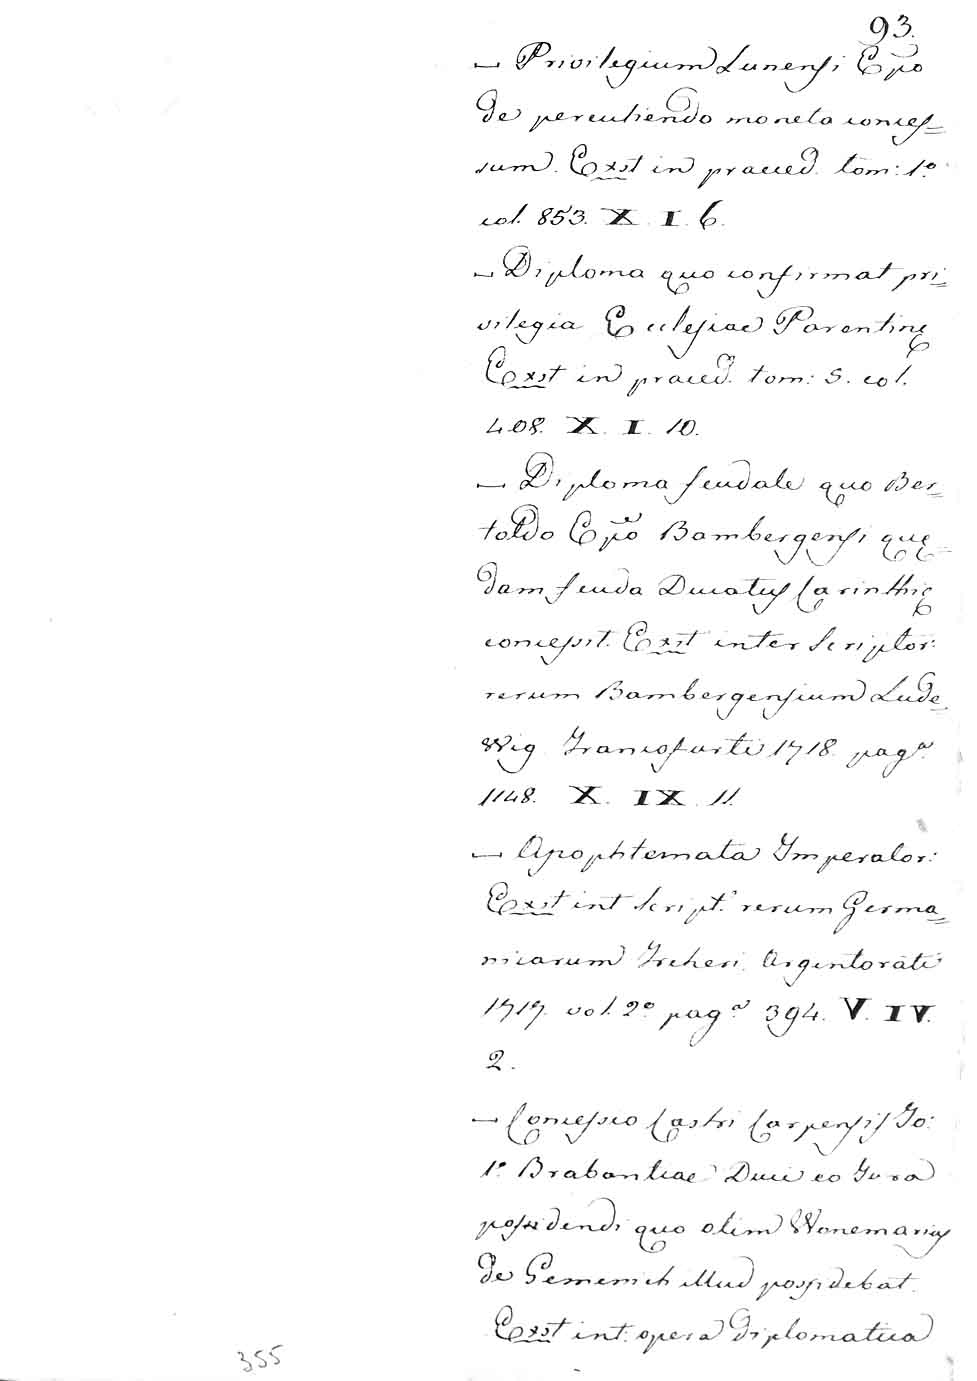 93.
— Privilegium Lunensi Epo
de percutiendo moneta conces=
sum. Exst in praeced. tom: 1.º
col. 853. X. I. 6.
— Diploma quo confirmat pri=
vilegia Ecclesiae Parentinę
Exst in praed. tom: 5. col.
408. X. I. 10.
— Diploma feudale quo Ber=
toldo Epo Bambergensi quę=
dam feuda Ducatus Carinthię
concessit. Exst inter Scriptor:
rerum Bambergensium Lude=
wig Francofurti 1718. pagª
1148. X. IX. 11.
— Apophtemata Imperator:
Exst int script. rerum Germa=
nicarum Freheri. Argentorati
1717. vol. 2º pagª 394. V. IV.
2.
— Concessio Castri Carpensis Jo:
1º Brabantiae Duci eo Jura
possidendi quo olim Wenemarius
de Gemenich illud possidebat.
Exst int: opera diplomatica
355